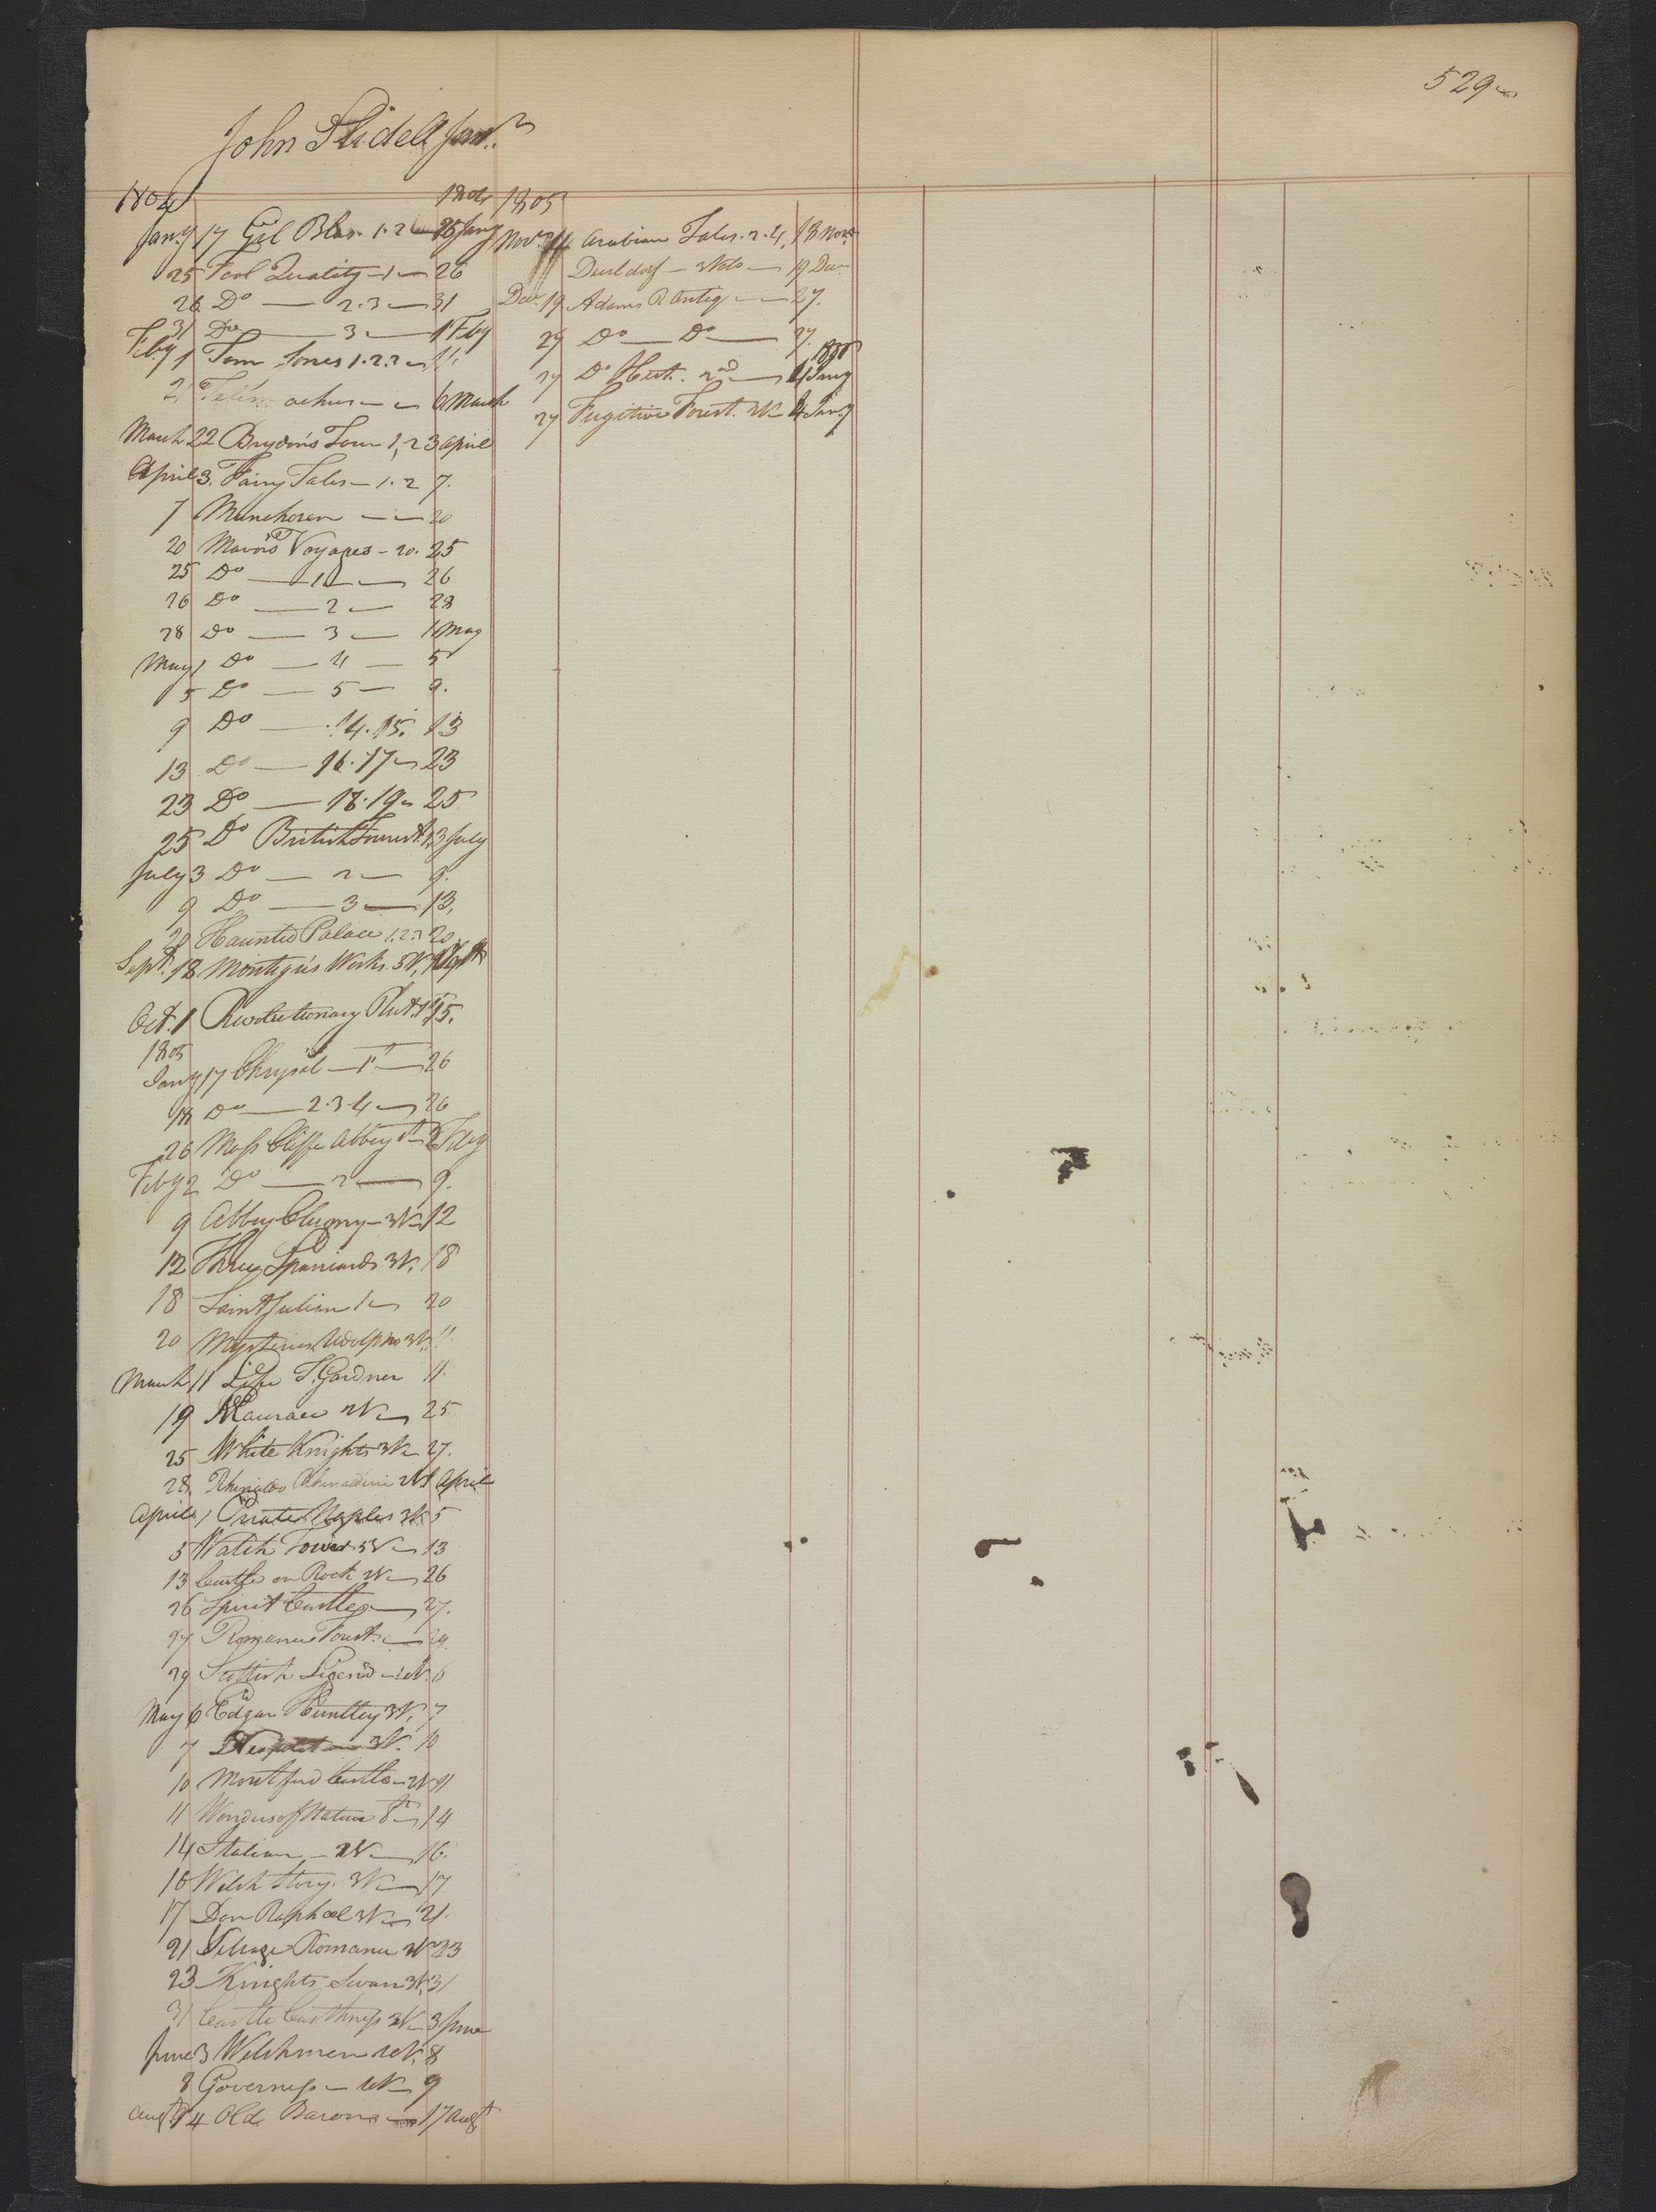 529
John Slidell Junr.
1804 1804
Jany 17 Gil Blas. 1.2 25 Jany
25 Fool Quality - 1 - 26
26 Do - 2.3 - 31
31 Do - 3 - 1 Feby
Feby 1 Tom Jones 1.2.3 11.
21 Telemachus - 6 March
March 22 Brydon's Tour 1, 2 3 April
April 3. Fairy Tales - 1.2 7.
7 Munchosen - 20
20 Mavor's Voyages - 20. 25
25 Do - 1 - 26
26 Do - 2 - 28
28 Do - 3 - 1 May
May 1 Do - 4 - 5
5 Do - 5 - 9.
9 Do - 14.15. 13
13 Do - 16.17 23
23 Do - 18.19 25
25 Do British Tourist 1. 3 July
July 3 Do - 2 - 9.
9 Do - 3 - 13.
20 Haunted Palace 1.2.3 20
Sept. 18 Montegu's Works. 5V.
Oct. 1 Revolutionary Plut. 1st 15.
1805
Jany 17 Chrysal - 1st - 26
18 Do - 2.3.4 - 26
26 Moss Cliffe Abbey 1st 2 Feby
Feby 2 Do - 2 - 9.
9 Abbey Clugny - 3V 12
12 Three Spaniards 3V. 18
18 Saint Julian 1 20
20 Mysteries Udolpho 3V. 11.
March 11 Life T. Gardner 11.
19 2V 25
25 White Knights 3V 27.
28 Rhinaldo 2V 1 April
April 1 Pirate Naples 3V. 5
5 Watch Tower 5V 13
13 Castle on Rock 2V 26
26 Spirit Castle 27.
27 Romance Forest. 29.
29 Scottish Legend - 4V. 6
May 6 Edgar Huntley 3V. 7
7 3V. 10
10 Montford Castle 2V 11
11 Wonders of Nature 8th 14
14 Italian - 2V 16.
16 Welsh Story. 3V 17.
17 Don Raphael 3V 21.
21 Romance 2V 23
23 Knights Swan 3V. 31
31 Castle Caithness 2V 3 June
June 3 Welshmen 4V. 8
8 Governess - 1V 9
Augt 14 Old Baron 17 Augt
1805
Novr 14 Arabian Tales. 2.4. 18 Novr
Dusldorf - 3 Vols - 19 Der
Decr. 19 Adams R Antiq - 27.
27 Do - Do - 27.
1806
27 Do Hist. 2nd 4 Jany
27 Fugitive Forest. 2V 4 Jany